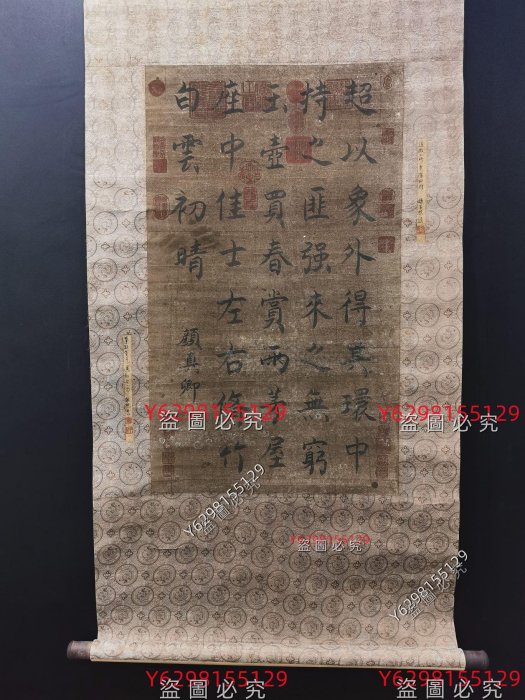 超以象外得其環中
持之匪强來之無窮
玉壺買春賞雨茅屋
座中佳士左右修竹
白雲初晴
顔真卿
Y6298155129
盜圖必究
Y6298155129
盜圖必究
Y6298155129
盜圖必究
Y6298155129
盜圖必究
Y6298155129
盜圖必究
Y6298155129
盜圖必究
Y6298155129
盜圖必究